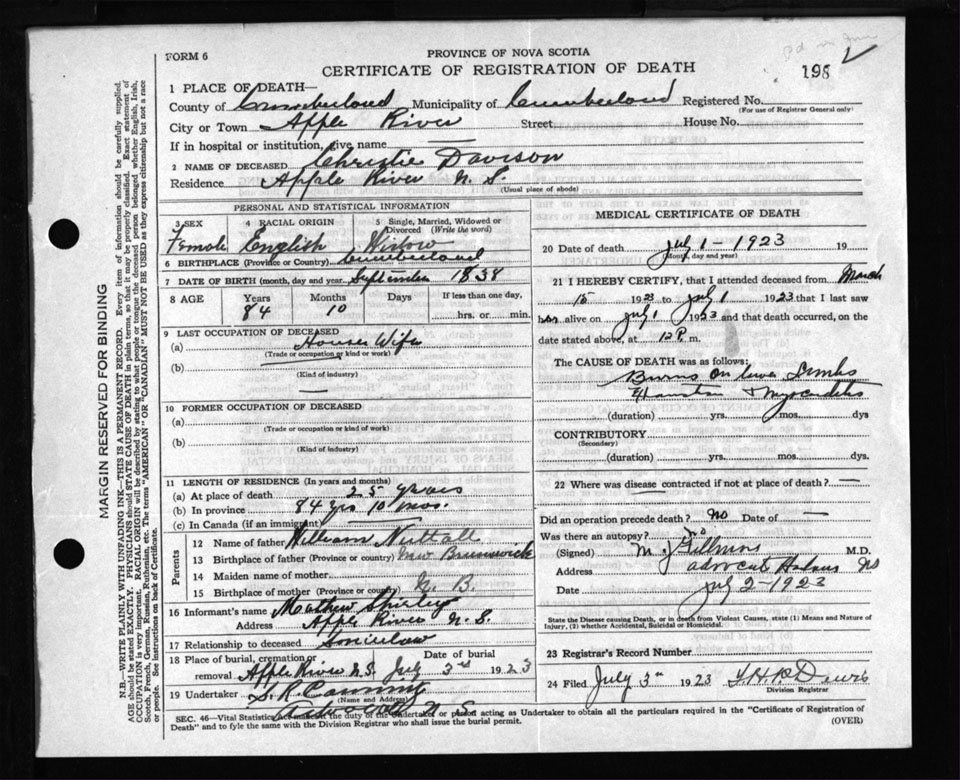 FORM 6
PROVINCE OF NOVA SCOTIA
CERTIFICATE OF REGISTRATION OF DEATH
198
1 PLACE OF DEATH—
County of Cumberland Municipality of Cumberland Registered No.
(For use of Registrar General only)
City or Town Apple River Street House No.
If in hospital or institution, give name
2 NAME OF DECEASED Christie Davison
Residence Apple River N. S.
(Usual place of abode)
PERSONAL AND STATISTICAL INFORMATION
3 SEX 4 RACIAL ORIGIN 5 Single, Married, Widowed or Divorced (Write the word)
Female English Widow
6 BIRTHPLACE (Province or Country) Cumberland
7 DATE OF BIRTH (month, day and year) September 1838
8 AGE Years Months Days If less than one day,
84 10 hrs. or min.
9 LAST OCCUPATION OF DECEASED
(a) House Wife
(Trade or occupation or kind of work)
(b)
(Kind of industry)
10 FORMER OCCUPATION OF DECEASED
(a)
(Trade or occupation or kind of work)
(b)
(Kind of industry)
11 LENGTH OF RESIDENCE (In years and months)
(a) At place of death 25 years
(b) In province 84 yrs 10 mos.
(c) In Canada (if an immigrant)
Parents
12 Name of father William Nuttall
13 Birthplace of father (Province or country) New Brunswick
14 Maiden name of mother
15 Birthplace of mother (Province or country) N. B.
16 Informant's name Mathew Shirley
Address Apple River N. S.
17 Relationship to deceased Soninlaw
18 Place of burial, cremation or removal Date of burial
Apple River N.S. July 3rd 1923
19 Undertaker
(Name and Address)
N. S.
MEDICAL CERTIFICATE OF DEATH
20 Date of death July 1 - 1923 19
(Month, day and year)
21 I HEREBY CERTIFY, that I attended deceased from March
15 1923 to July 1 1923 that I last saw
her alive on July 1 1923 and that death occurred, on
date stated above, at 12 P. m.
The CAUSE OF DEATH was as follows:
Burns on lower Limbs
+ myocarditis
(duration) yrs. mos. dys
CONTRIBUTORY
(Secondary)
(duration) yrs. mos. dys
22 Where was disease contracted if not at place of death? —
Did an operation precede death? No Date of —
Was there an autopsy? no
(Signed) M. J. M.D.
Address Advocate NS
Date July 2 - 1923
State the Disease causing Death, or in death from Violent Causes, state (1) Means and Nature of Injury, (2) whether Accidental, Suicidal or Homicidal.
23 Registrar's Record Number
24 Filed July 3rd 1923
Division Registrar
SEC. 46—Vital Statistics Act makes it the duty of the Undertaker or person acting as Undertaker to obtain all the particulars required in the "Certificate of Registration of
Death" and to fyle the same with the Division Registrar who shall issue the burial permit.
(OVER)
MARGIN RESERVED FOR BINDING
N.B.—WRITE PLAINLY WITH UNFADING INK—THIS IS A PERMANENT RECORD. Every item of information should be carefully supplied.
AGE should be stated EXACTLY. PHYSICIANS should STATE CAUSE OF DEATH in plain terms, so that it may be properly classified. Exact statement of
OCCUPATION is very important. RACIAL ORIGIN will be described by stating to what people or tongue the deceased person belonged whether English, Irish,
Scotch, French, German, Russian, Ruthenian, etc. The terms "AMERICAN" OR "CANADIAN" MUST NOT BE USED as they express citizenship but not a race
or people. See instructions on back of Certificate.